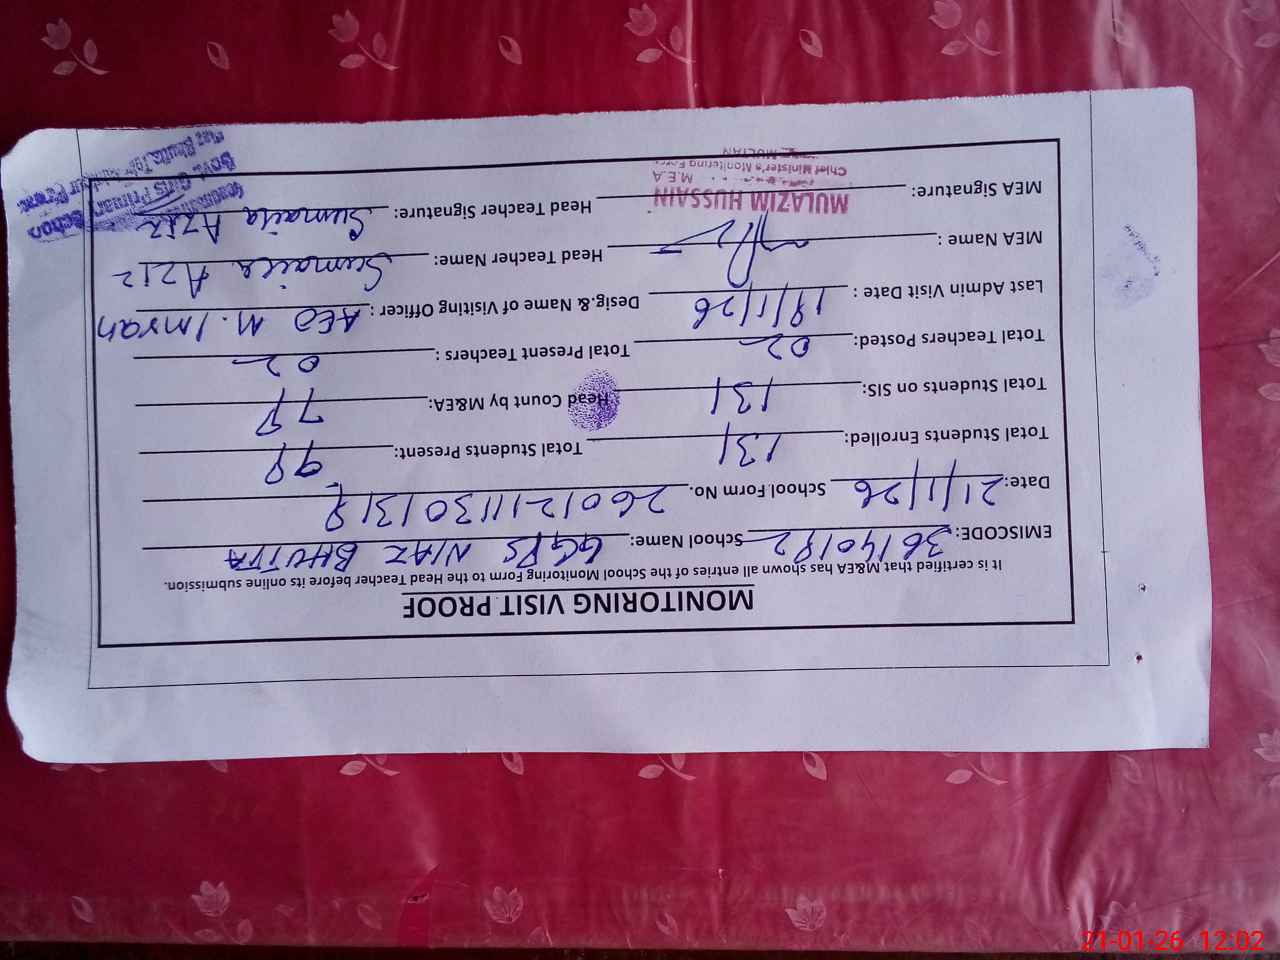 MONITORING VISIT PROOF
It is certified that M&EA has shown all entries of the School Monitoring Form to the Head Teacher before its online submission.
EMISCODE: 36140192 School Name: GGPS NIAZ BHUTTA
Date: 21/1/26 School Form No. 26012111301318
Total Students Enrolled: 131 Total Students Present: 98
Total Students on SIS: 131 Head Count by M&EA: 78
Total Teachers Posted: 02 Total Present Teachers : 02
Last Admin Visit Date : 19/1/26 Desig.& Name of Visiting Officer : AEO M. Imran
MEA Name : Head Teacher Name: Sumaila Aziz
MEA Signature: Head Teacher Signature: Sumaila Aziz
MULAZIM HUSSAIN
M.E.A
Chief Minister's Monitoring Force
MULTAN
Govt. Girls Primary School
21-01-26 12:02